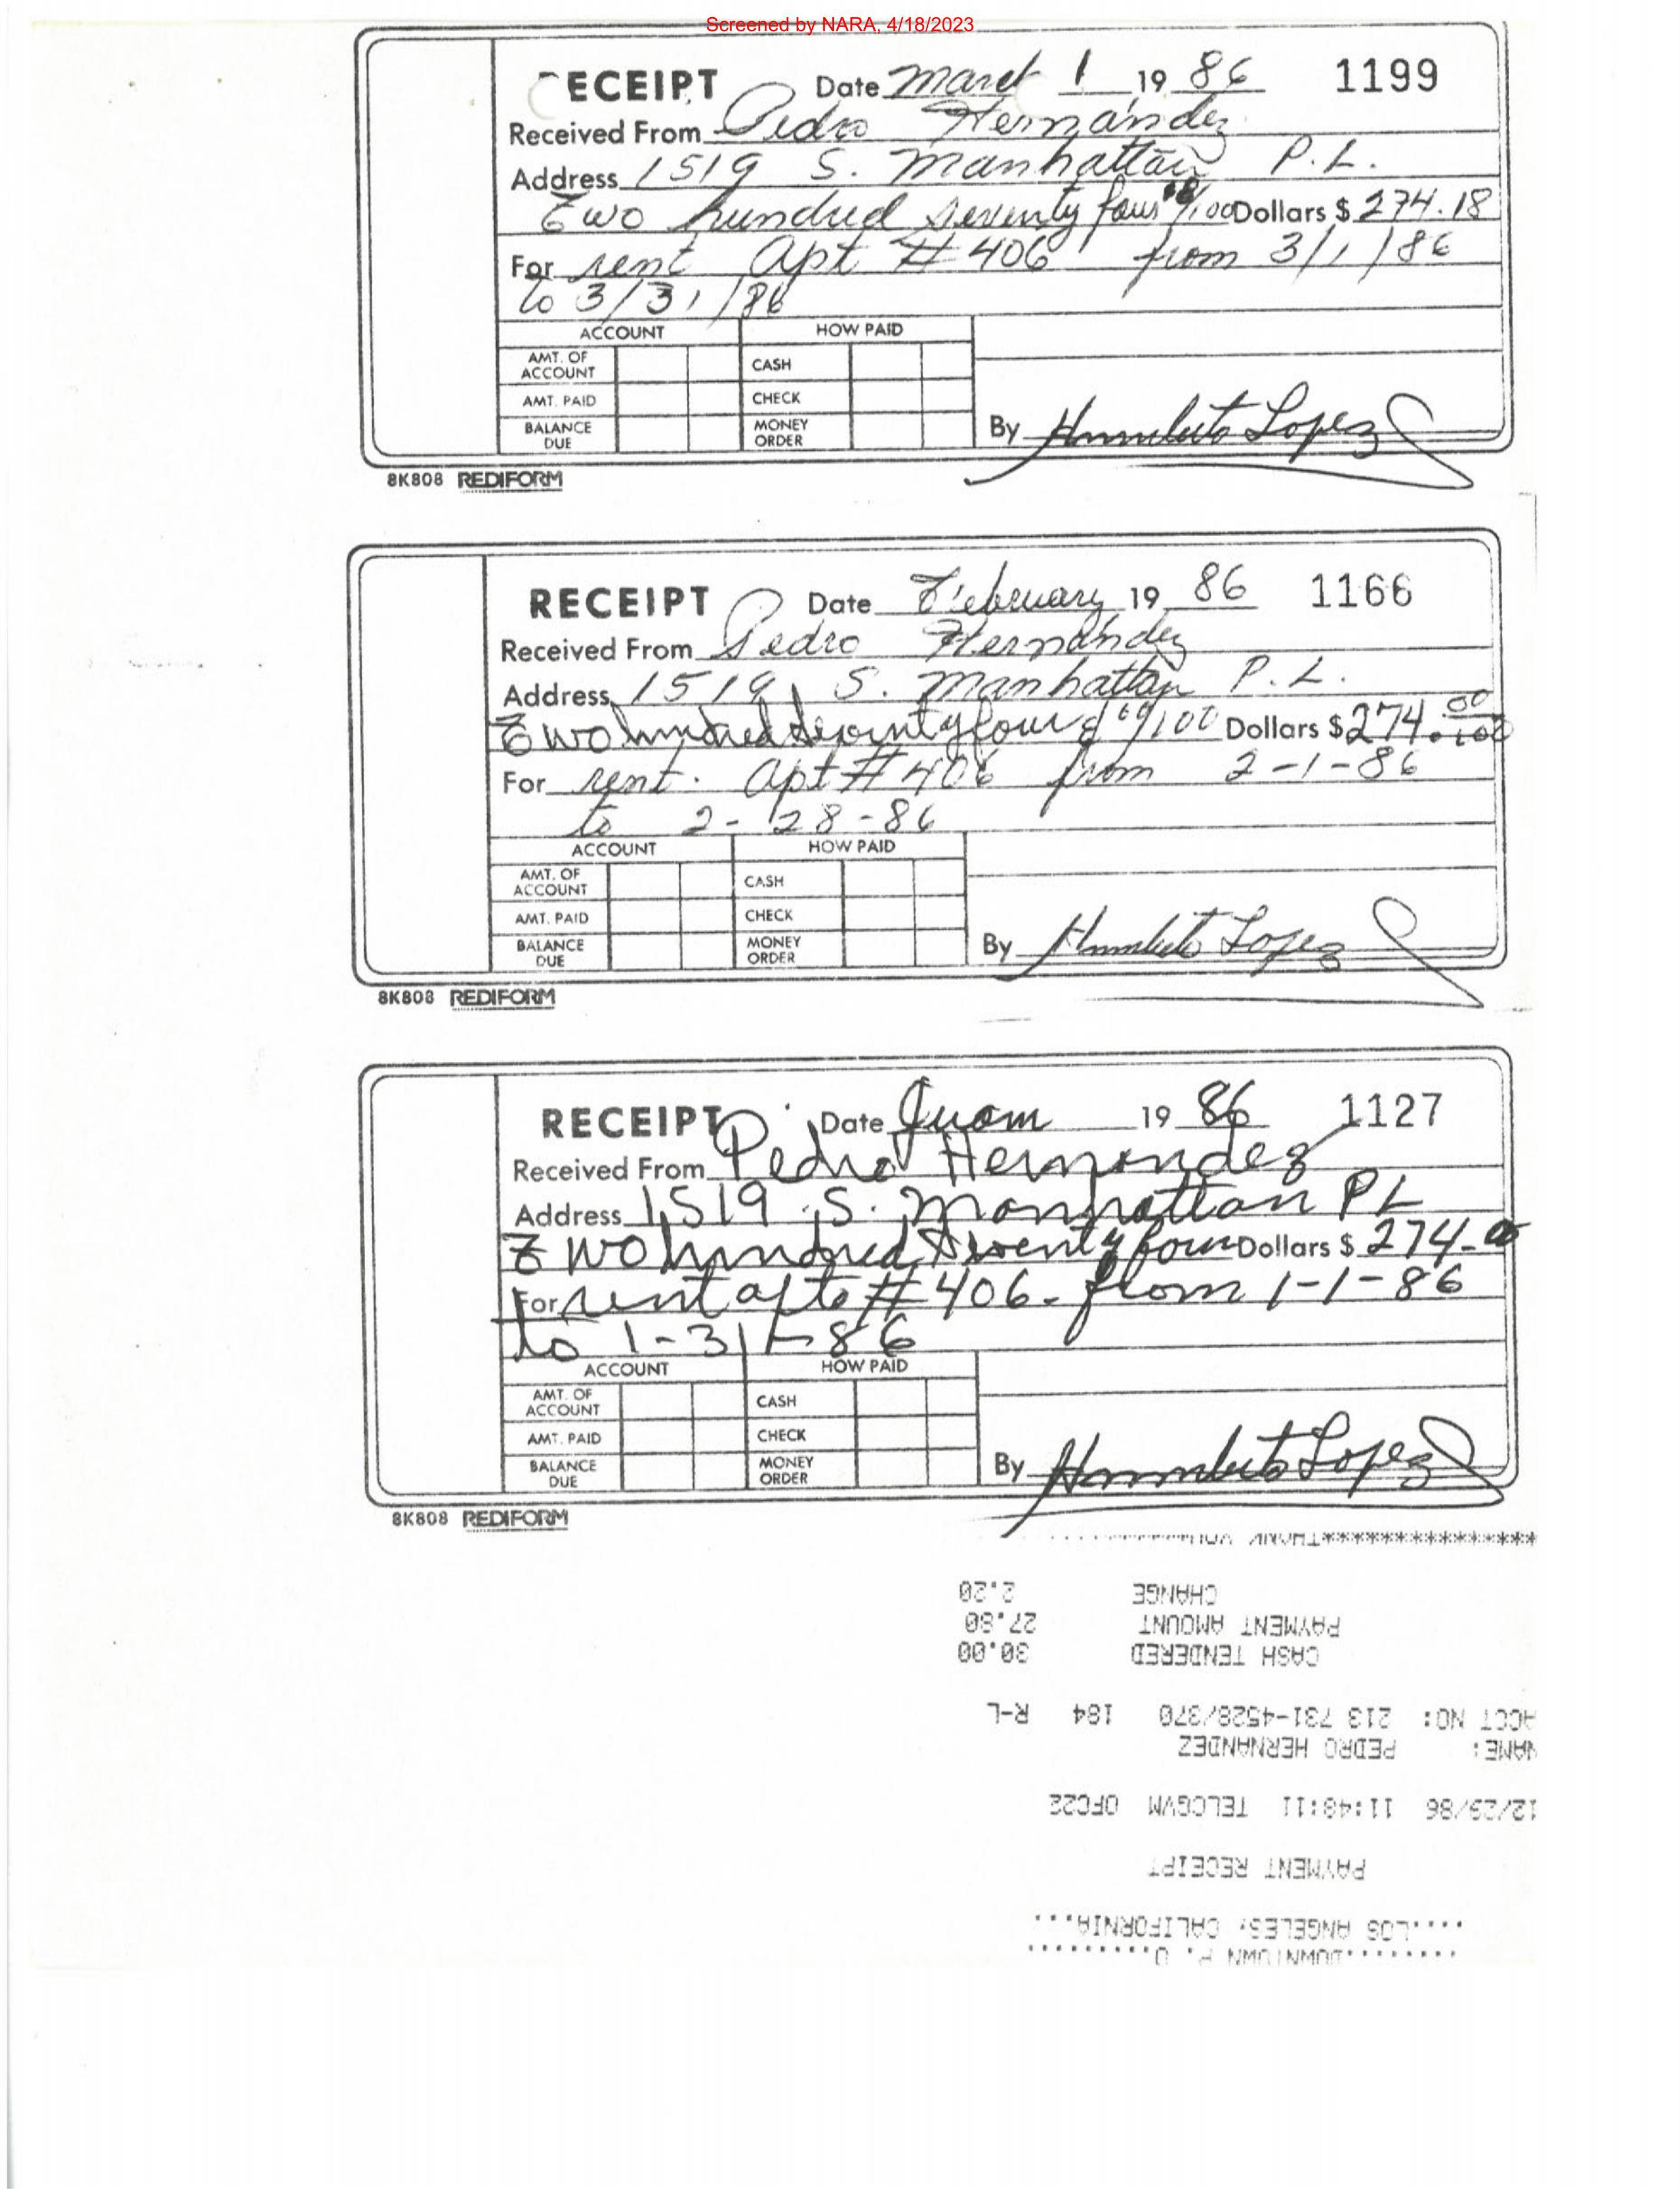 Screened by NARA, 4/18/2023
ECEIPT Date March 1 19 86 1199
Received From Pedro Hernández
Address 1519 S. Manhattan P.L.
Two hundred seventy four 18/100 Dollars $ 274.18
For rent Apt # 406 from 3/1/86
to 3/31/86
ACCOUNT HOW PAID
AMT. OF ACCOUNT CASH
AMT. PAID CHECK
BALANCE DUE MONEY ORDER
By Humberto Lopez
8K808 REDIFORM
RECEIPT Date February 19 86 1166
Received From Pedro Hernández
Address 1519 S. Manhattan P.L.
Two hundred seventy four & 00/100 Dollars $ 274.00/100
For rent. Apt # 406 from 2-1-86
to 2-28-86
ACCOUNT HOW PAID
AMT. OF ACCOUNT CASH
AMT. PAID CHECK
BALANCE DUE MONEY ORDER
By Humberto Lopez
8K808 REDIFORM
RECEIPT Date 19 86 1127
Received From Pedro Hernandez
Address 1519 S. Manhattan PL
Two hundred seventy four Dollars $ 274-00
For rent apto # 406- from 1-1-86
to 1-31-86
ACCOUNT HOW PAID
AMT. OF ACCOUNT CASH
AMT. PAID CHECK
BALANCE DUE MONEY ORDER
By Humberto Lopez
8K808 REDIFORM
........DOWNTOWN P. O.........
....LOS ANGELES, CALIFORNIA...
PAYMENT RECEIPT
12/29/86 11:48:11 TELCGVM OFC22
NAME: PEDRO HERNANDEZ
ACCT NO: 213 731-4528/370 184 R-L
CASH TENDERED 30.00
PAYMENT AMOUNT 27.80
CHANGE 2.20
****************THANK YOU